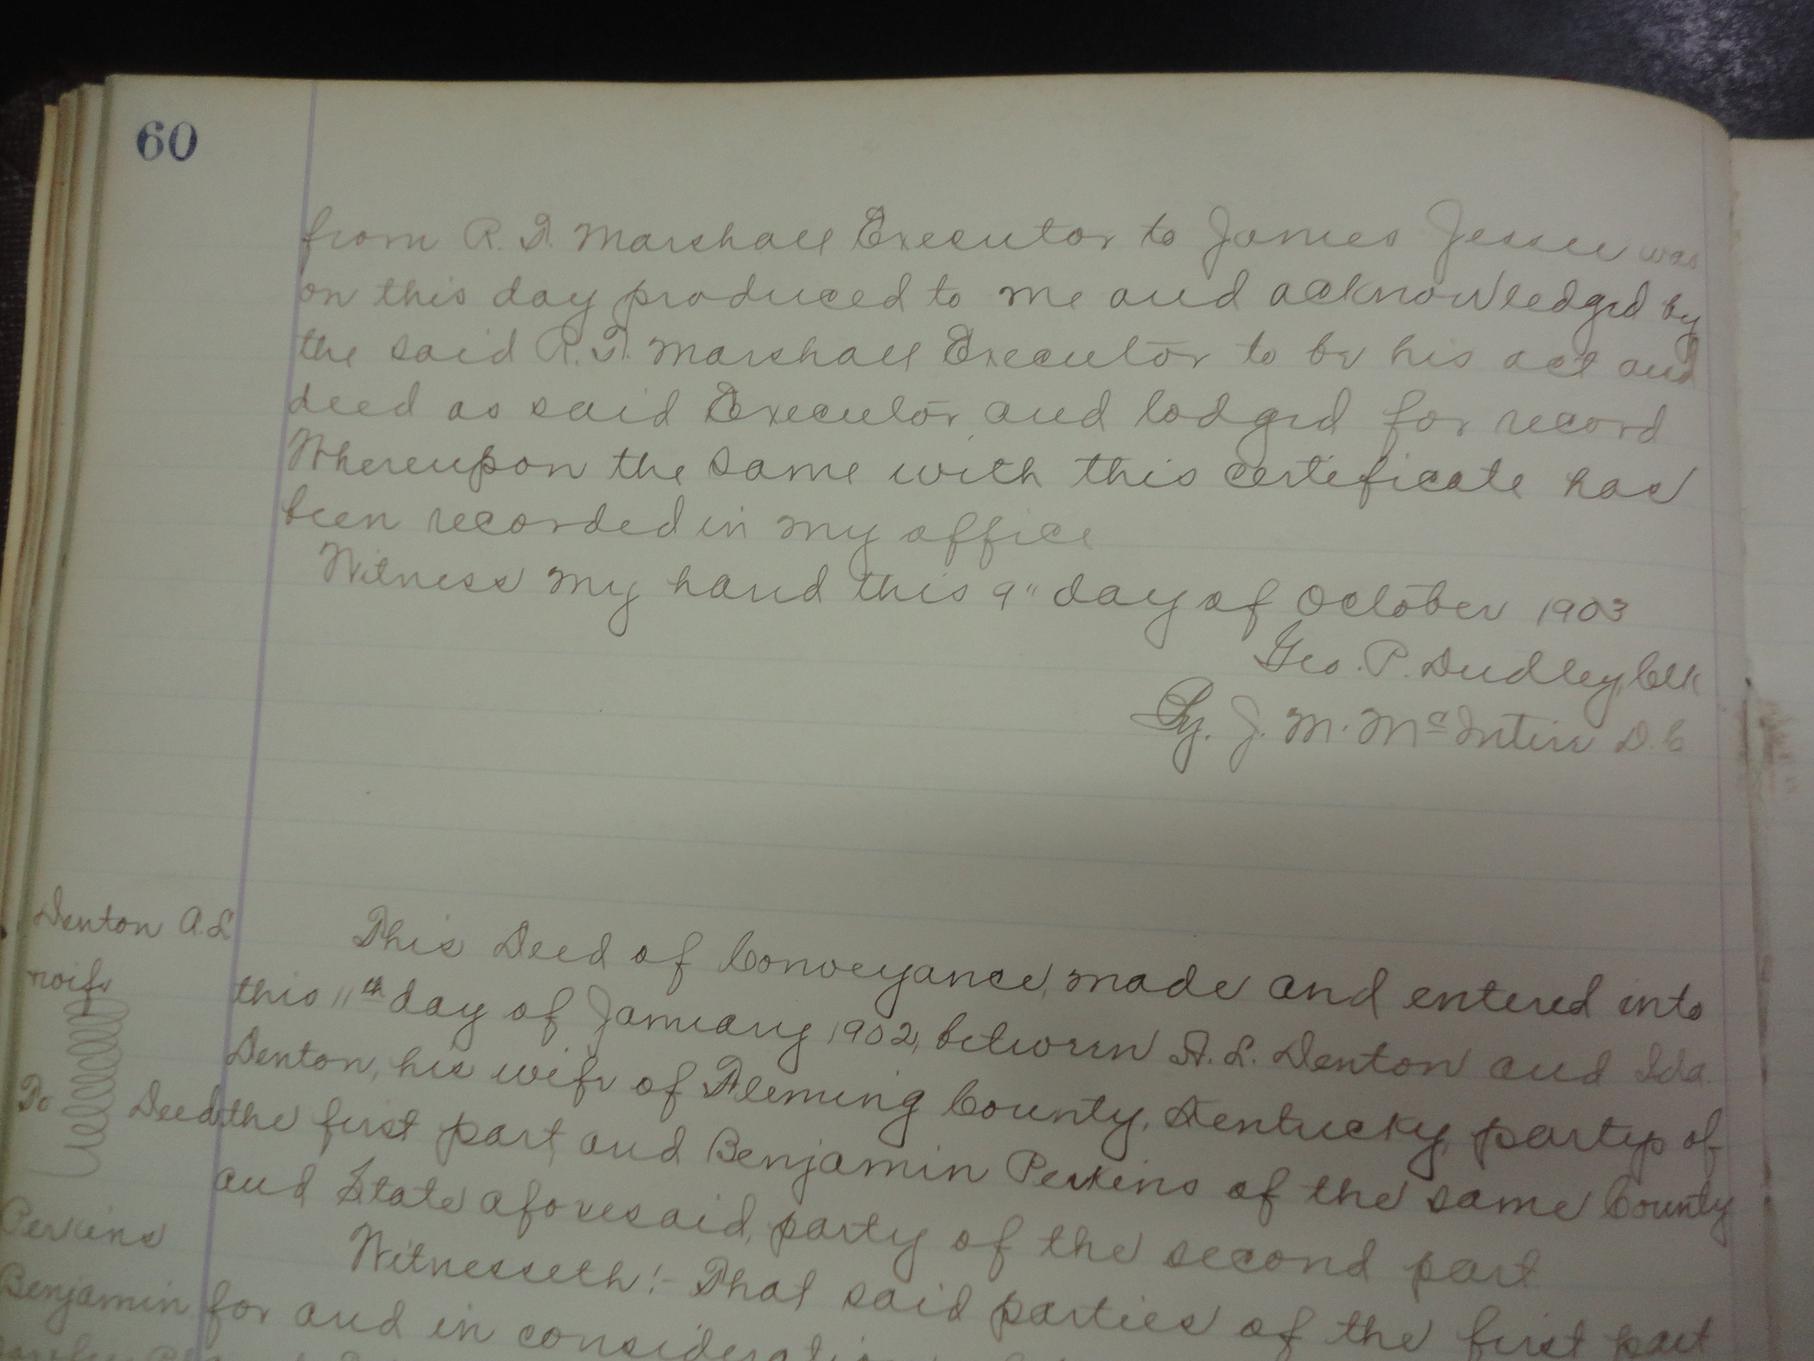 60
from R. T. Marshall Executor to James Jesse was
on this day produced to me and acknowledged by
the said R. T. Marshall Executor to be his act and
deed as said Executor and lodged for record
Whereupon the same with this certificate has
been recorded in my office
Witness my hand this 9" day of October 1903
Geo. P. Dudley, Clk
By. J. M. McIntire D. C
Denton A. L
This Deed of Conveyance, made and entered into
wife
this 11th day of January 1902, between A. L. Denton and Ida
Denton, his wife of Fleming County, Kentucky, partys of
To Deed
the first part, and Benjamin Perkins of the same County
and State aforesaid, party of the second part
Perkins
Witnesseth:- That said parties of the first part
Benjamin
for and in consideration